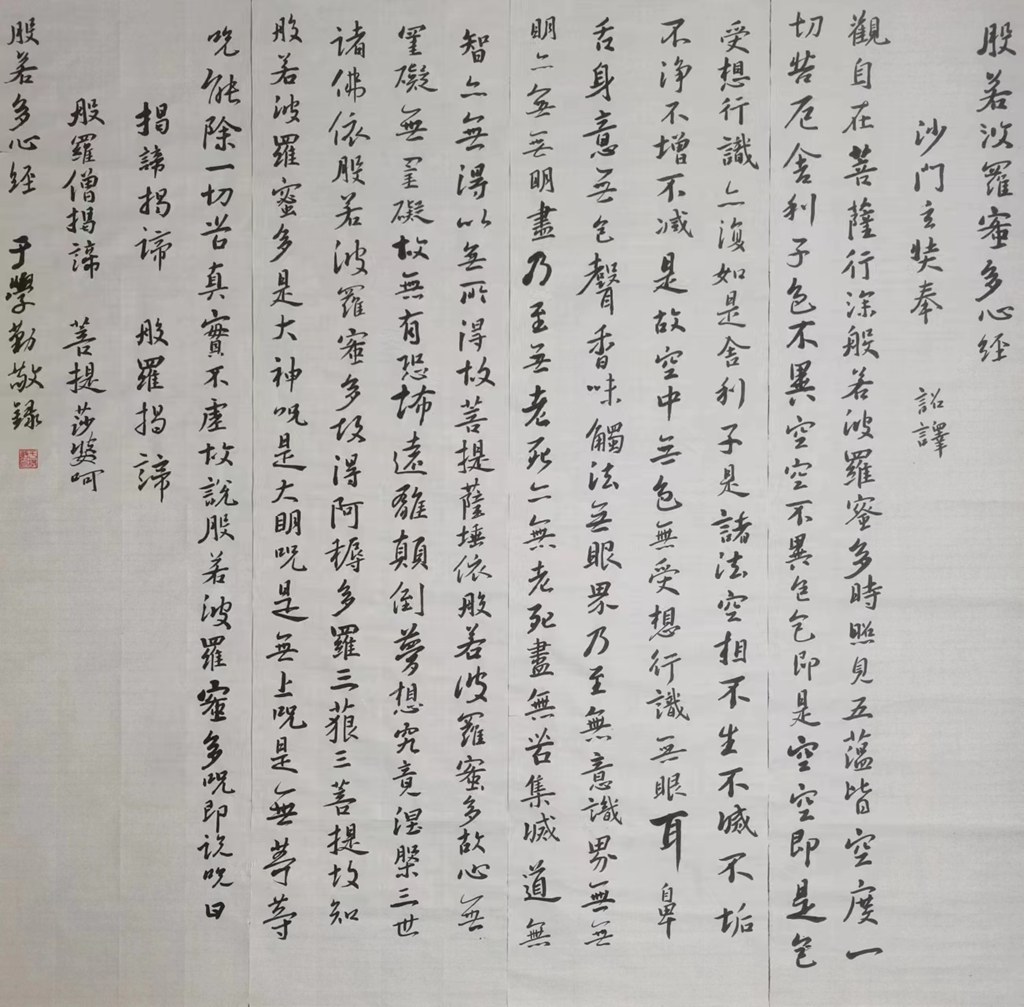 般若波羅蜜多心经
沙門玄奘奉　詔譯
觀自在菩薩行深般若波羅蜜多時照見五蕴皆空度一
切苦厄舍利子色不異空空不異色色即是空空即是色
受想行識亦復如是舍利子是諸法空相不生不滅不垢
不净不增不减是故空中無色無受想行識無眼耳鼻
舌身意無色聲香味觸法無眼界乃至無意識界無無
明亦無無明盡乃至無老死亦無老死盡無苦集滅道無
智亦無得以無所得故菩提薩埵依般若波羅蜜多故心無
罣礙無罣礙故無有恐怖遠離顛倒夢想究竟涅槃三世
诸佛依般若波羅蜜多故得阿耨多羅三藐三菩提故知
般若波羅蜜多是大神呪是大明呪是無上呪是無等等
呪能除一切苦真實不虚故說般若波羅蜜多呪即说呪曰
揭諦揭諦　般羅揭諦
般羅僧揭諦　菩提莎婆呵
般若多心经　于學勤敬録